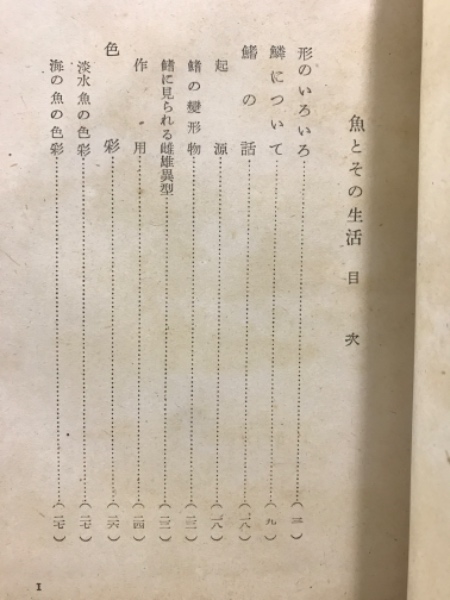 魚とその生活 目次
形のいろいろ……………(
鱗について……………(九)
鰭の話……………(一八)
起源……………(一八)
鰭の變形物……………(
鰭に見られる雌雄異型……………(
作用……………(二四)
色彩……………(二六)
淡水魚の色彩……………(二七)
海の魚の色彩……………(二七)
I